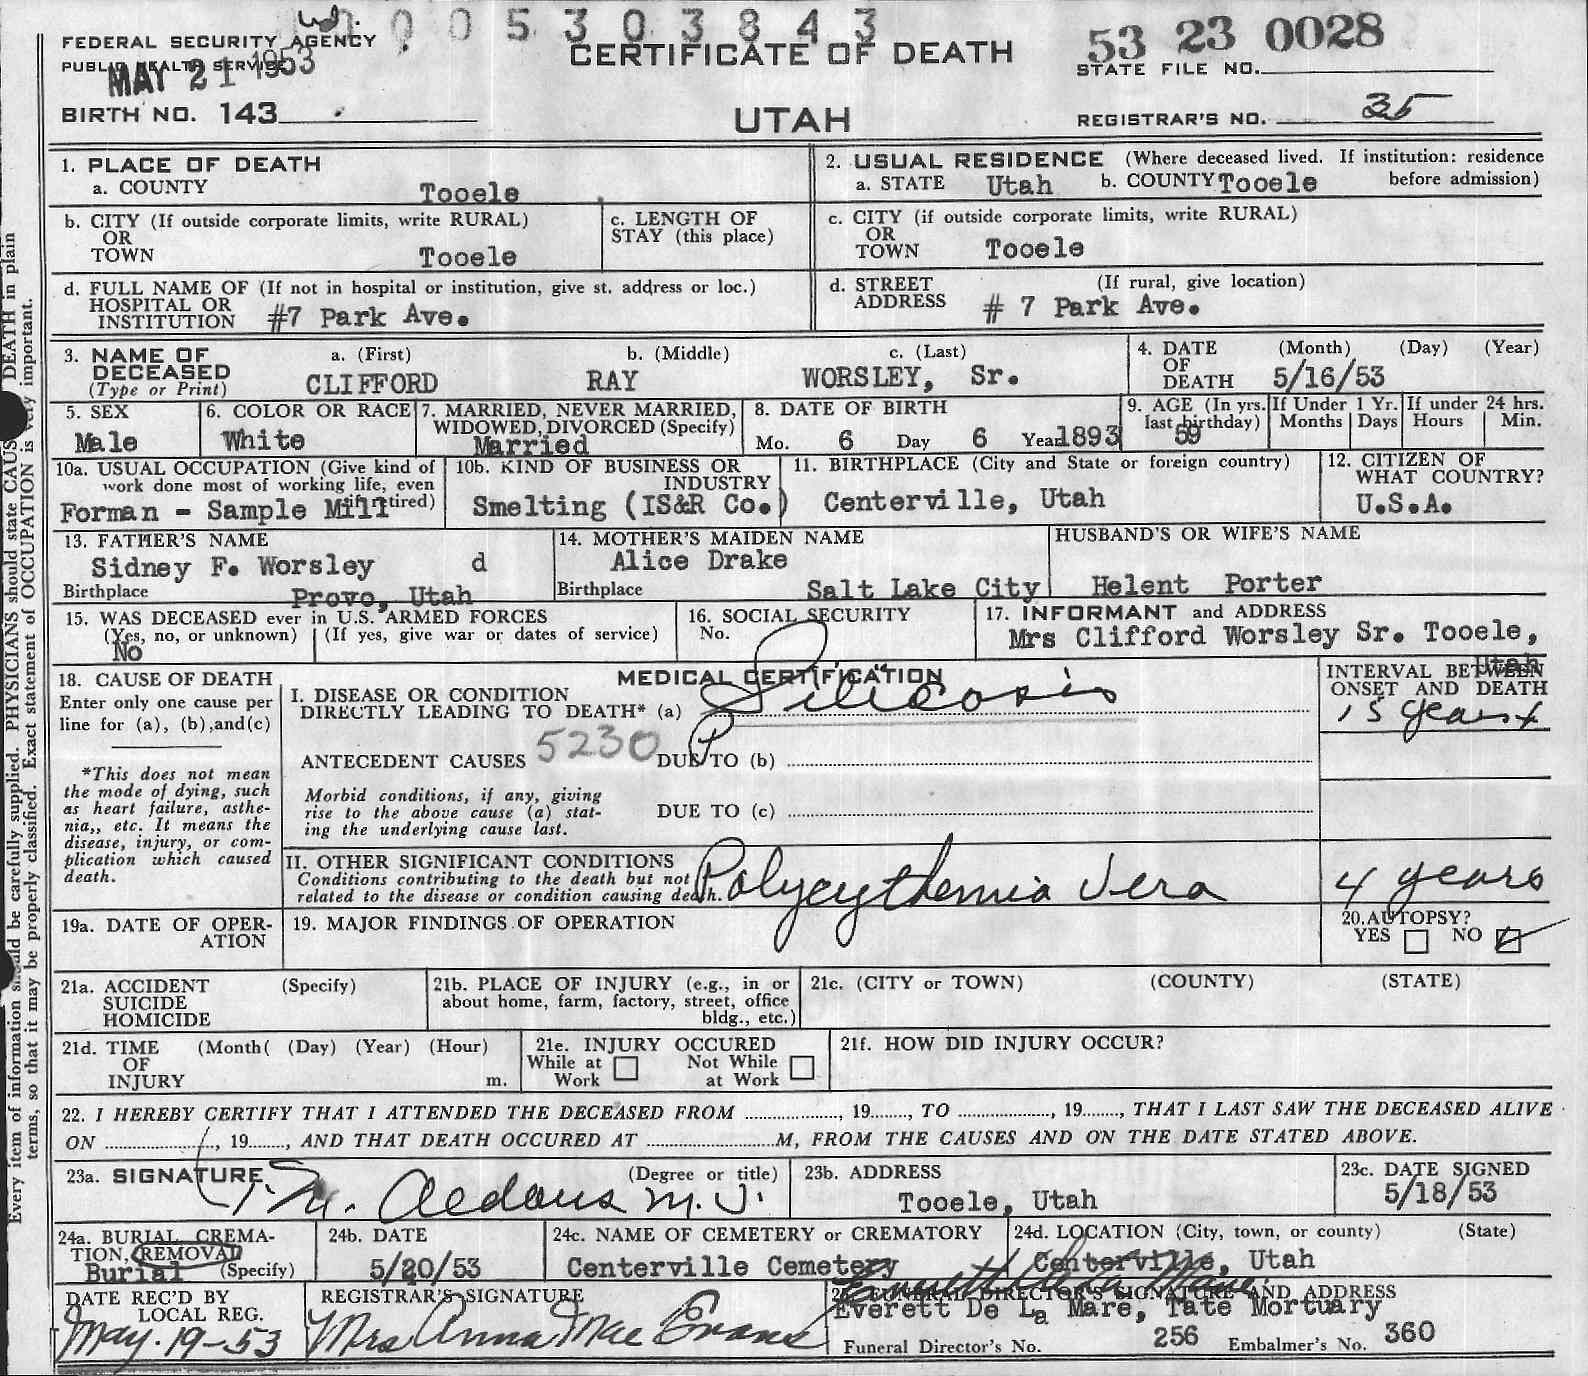 0 0 5 3 0 3 8 4 3
FEDERAL SECURITY AGENCY
PUBLIC HEALTH SERVICE
MAY 21 1953
CERTIFICATE OF DEATH
UTAH
53 23 0028
STATE FILE NO.
BIRTH NO. 143
REGISTRAR'S NO. 35
1. PLACE OF DEATH
a. COUNTY Tooele
2. USUAL RESIDENCE (Where deceased lived. If institution: residence
a. STATE Utah b. COUNTY Tooele before admission)
b. CITY (If outside corporate limits, write RURAL)
OR
TOWN Tooele
c. LENGTH OF
STAY (this place)
c. CITY (if outside corporate limits, write RURAL)
OR
TOWN Tooele
d. FULL NAME OF (If not in hospital or institution, give st. address or loc.)
HOSPITAL OR
INSTITUTION #7 Park Ave.
d. STREET (If rural, give location)
ADDRESS # 7 Park Ave.
3. NAME OF a. (First) b. (Middle) c. (Last)
DECEASED
(Type or Print) CLIFFORD RAY WORSLEY, Sr.
4. DATE (Month) (Day) (Year)
OF
DEATH 5/16/53
5. SEX
Male
6. COLOR OR RACE
White
7. MARRIED, NEVER MARRIED,
WIDOWED, DIVORCED (Specify)
Married
8. DATE OF BIRTH
Mo. 6 Day 6 Year 1893
9. AGE (In yrs.
last birthday)
59
If Under 1 Yr.
Months Days
If under 24 hrs.
Hours Min.
10a. USUAL OCCUPATION (Give kind of
work done most of working life, even
if retired)
Forman - Sample Mill
10b. KIND OF BUSINESS OR
INDUSTRY
Smelting (IS&R Co.)
11. BIRTHPLACE (City and State or foreign country)
Centerville, Utah
12. CITIZEN OF
WHAT COUNTRY?
U.S.A.
13. FATHER'S NAME
Sidney F. Worsley d
Birthplace Provo, Utah
14. MOTHER'S MAIDEN NAME
Alice Drake
Birthplace Salt Lake City
HUSBAND'S OR WIFE'S NAME
Helent Porter
15. WAS DECEASED ever in U.S. ARMED FORCES
(Yes, no, or unknown) (If yes, give war or dates of service)
No
16. SOCIAL SECURITY
No.
17. INFORMANT and ADDRESS
Mrs Clifford Worsley Sr. Tooele,
Utah
18. CAUSE OF DEATH
Enter only one cause per
line for (a), (b), and (c)
*This does not mean
the mode of dying, such
as heart failure, asthe-
nia,, etc. It means the
disease, injury, or com-
plication which caused
death.
MEDICAL CERTIFICATION
I. DISEASE OR CONDITION
DIRECTLY LEADING TO DEATH* (a) Silicosis
INTERVAL BETWEEN
ONSET AND DEATH
15 years +
ANTECEDENT CAUSES 5230 DUE TO (b)
Morbid conditions, if any, giving
rise to the above cause (a) stat-
ing the underlying cause last.
DUE TO (c)
II. OTHER SIGNIFICANT CONDITIONS
Conditions contributing to the death but not
related to the disease or condition causing death.
Polycythemia Vera 4 years
19a. DATE OF OPER-
ATION
19. MAJOR FINDINGS OF OPERATION
20. AUTOPSY?
YES NO
21a. ACCIDENT (Specify)
SUICIDE
HOMICIDE
21b. PLACE OF INJURY (e.g., in or
about home, farm, factory, street, office
bldg., etc.)
21c. (CITY or TOWN) (COUNTY) (STATE)
21d. TIME (Month( (Day) (Year) (Hour)
OF
INJURY m.
21e. INJURY OCCURED
While at Not While
Work at Work
21f. HOW DID INJURY OCCUR?
22. I HEREBY CERTIFY THAT I ATTENDED THE DECEASED FROM ................, 19......., TO ................, 19......., THAT I LAST SAW THE DECEASED ALIVE
ON ................, 19......., AND THAT DEATH OCCURED AT ....................M, FROM THE CAUSES AND ON THE DATE STATED ABOVE.
23a. SIGNATURE (Degree or title)
M.D.
23b. ADDRESS
Tooele, Utah
23c. DATE SIGNED
5/18/53
24a. BURIAL, CREMA-
TION, REMOVAL
Burial (Specify)
24b. DATE
5/20/53
24c. NAME OF CEMETERY or CREMATORY
Centerville Cemetery
24d. LOCATION (City, town, or county) (State)
Centerville, Utah
DATE REC'D BY
LOCAL REG.
May. 19-53
REGISTRAR'S SIGNATURE
Mrs Anna Mae Evans
Everett De La Mare
25. FUNERAL DIRECTOR'S SIGNATURE AND ADDRESS
Everett De La Mare, Tate Mortuary
Funeral Director's No. 256 Embalmer's No. 360
Every item of information should be carefully supplied. PHYSICIANS should state CAUSE OF DEATH in plain
terms, so that it may be properly classified. Exact statement of OCCUPATION is very important.